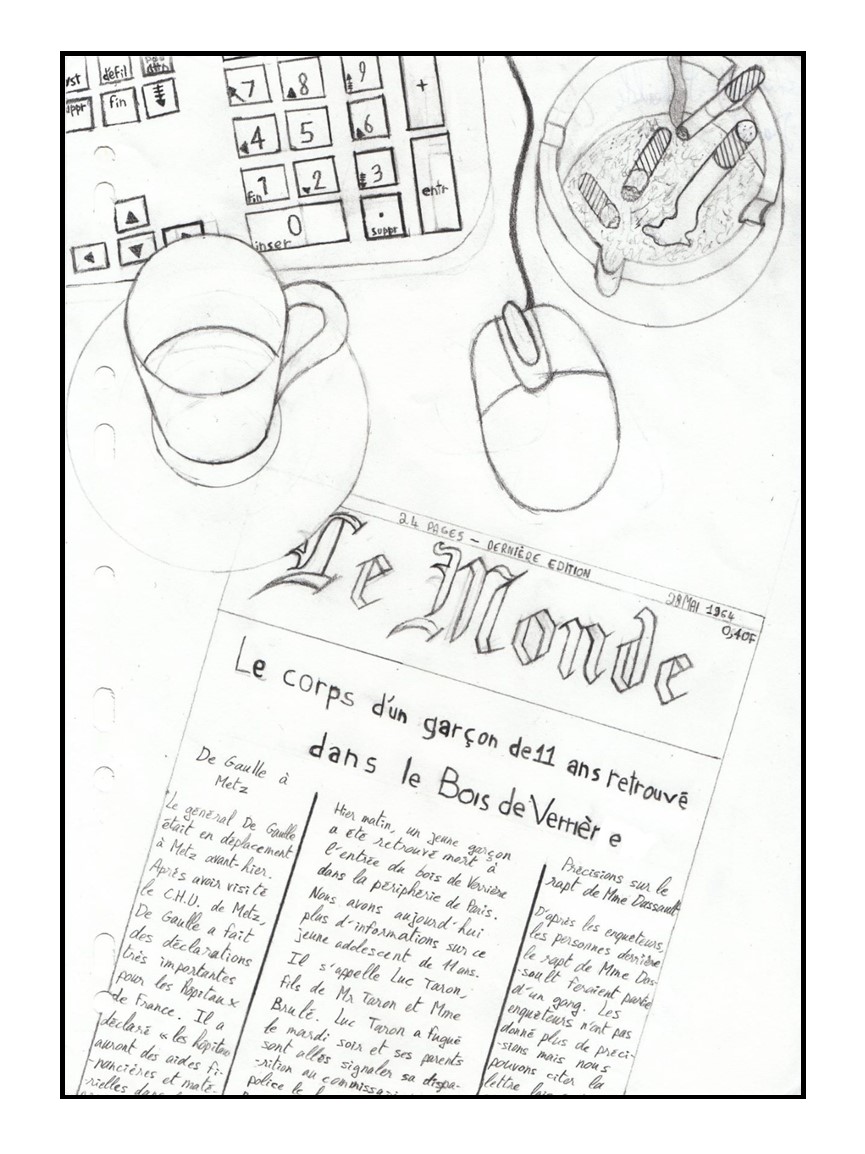 défil
fin
7
8
9
+
4
5
6
1
fin
2
3
entr
0
inser
.
suppr
24 PAGES - DERNIÈRE EDITION
28 MAI 1964
Le Monde
0,40F
Le corps d'un garçon de 11 ans retrouvé
dans le Bois de Verrière
De Gaulle à
Metz
Le général De Gaulle
était en déplacement
à Metz avant-hier.
Après avoir visité
le C.H.U. de Metz,
De Gaulle a fait
des déclarations
très importantes
pour les hôpitaux
de France. Il a
déclaré « les hôpitaux
auront des aides fi-
-nancières et maté-
-rielles dans
Hier matin, un jeune garçon
a été retrouvé mort à
l'entrée du bois de Verrière
dans la périphérie de Paris.
Nous avons aujourd'hui
plus d'informations sur ce
jeune adolescent de 11 ans.
Il s'appelle Luc Taron,
fils de Mr Taron et Mme
Brulé. Luc Taron a fugué
le mardi soir et ses parents
sont allés signaler sa dispa-
-rition au commissari
police le
Précisions sur le
rapt de Mme Dassault
D'après les enquêteurs,
les personnes derrière
le rapt de Mme Das-
-sault feraient partie
d'un gang. Les
enquêteurs n'ont pas
donné plus de préci-
-sions mais nous
pouvons citer la
lettre